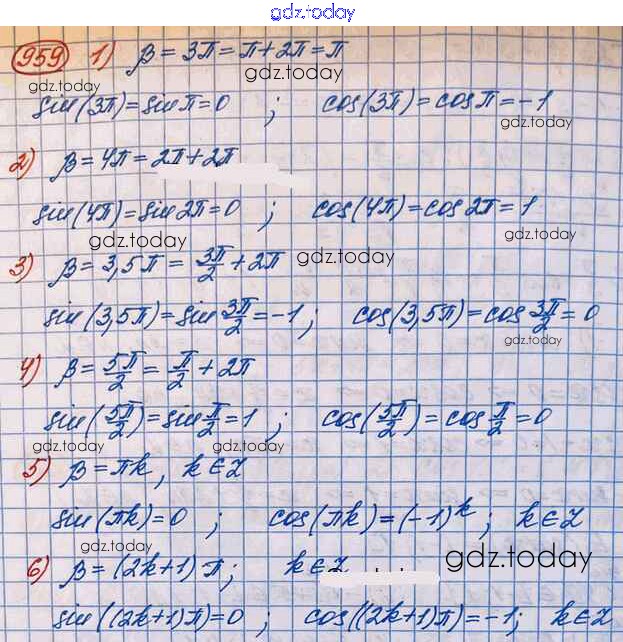 gdz.today
959 1) β = 3π = π + 2π = π
gdz.today
sin(3π) = sin π = 0 ; cos(3π) = cos π = -1
gdz.today
2) β = 4π = 2π + 2π
sin(4π) = sin 2π = 0 ; cos(4π) = cos 2π = 1
gdz.today gdz.today
3) β = 3,5π = 3π/2 + 2π gdz.today
sin(3,5π) = sin 3π/2 = -1 ; cos(3,5π) = cos 3π/2 = 0
gdz.today
4) β = 5π/2 = π/2 + 2π
sin(5π/2) = sin π/2 = 1 ; cos(5π/2) = cos π/2 = 0
gdz.today gdz.today gdz.today
5) β = πk, k ∈ Z
sin(πk) = 0 ; cos(πk) = (-1)^k ; k ∈ Z
gdz.today gdz.today
6) β = (2k+1)π ; k ∈ Z
sin((2k+1)π) = 0 ; cos((2k+1)π) = -1 ; k ∈ Z